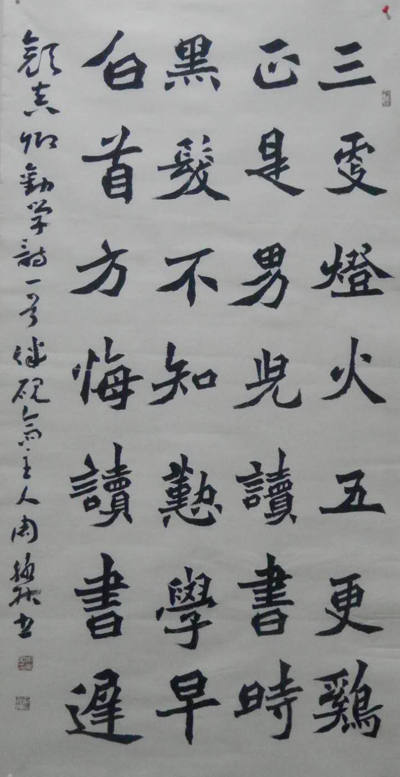 三更燈火五更鷄
正是男兒讀書時
黑髮不知懃學早
白首方悔讀書遲
颜真卿勸学詩一首伴砚斋主人周书